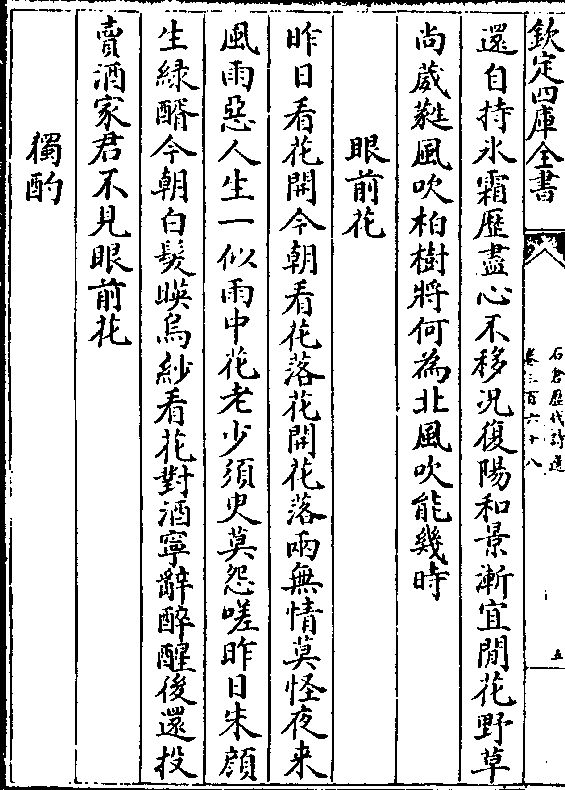 欽定四庫全書
石倉歷代詩選
卷三百六十八
五
還自持氷霜歷盡心不移况復陽和景漸宜閒花野草
尚葳蕤風吹柏樹將何為北風吹能幾時
眼前花
昨日看花開今朝看花落花開花落兩無情莫怪夜來
風雨惡人生一似雨中花老少須臾莫怨嗟昨日朱顔
生緑醑今朝白髮暎烏紗看花對酒寧辭醉醒後還投
賣酒家君不見眼前花
獨酌